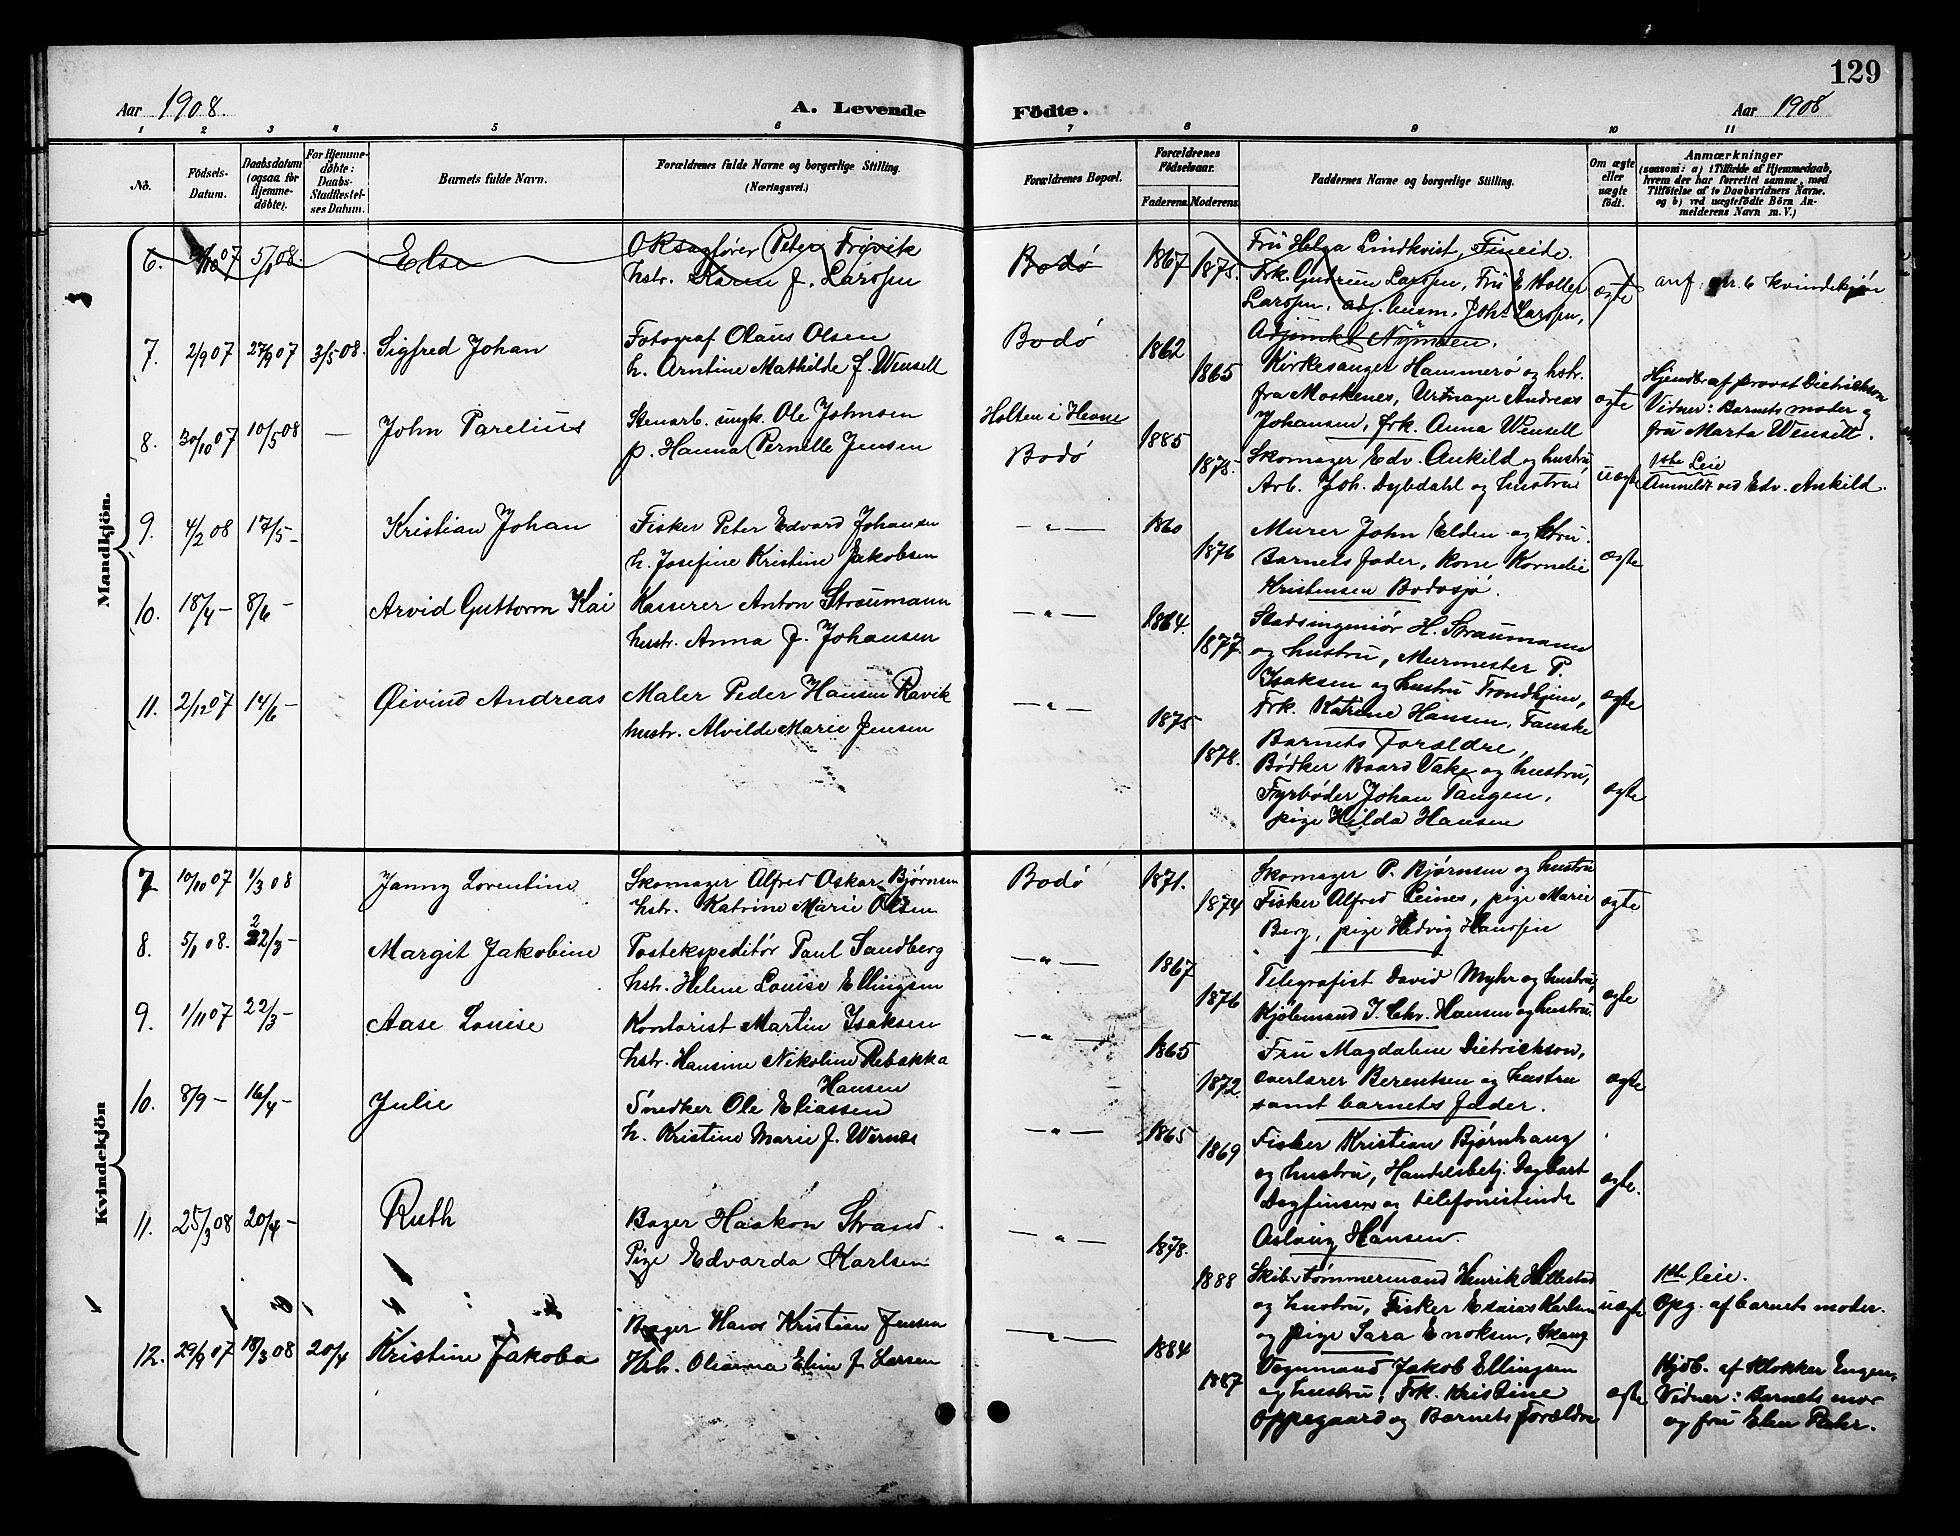 129
Aar 1908.
A. Levende
Födte.
Aar 1908
1 2 3 4 5 6 7 8 9 10 11
No.
Födsels-
Datum.
Daabsdatum
(ogsaa for
Hjemme-
döbte).
For Hjemme-
döbte:
Daabs-
Stadfæstel-
ses Datum.
Barnets fulde Navn.
Forældrenes fulde Navne og borgerlige Stilling.
(Næringsvei.)
Forældrenes Bopæl.
Forældrenes
Födselsaar.
Faderens.
Moderens.
Faddernes Navne og borgerlige Stilling.
Om ægte
eller
uægte
födt.
Anmærkninger
(saasom: a) i Tilfælde af Hjemmedaab,
hvem der har forrettet samme, med
Tilföielse af to Daabsvidners Navne.
og b) ved uægtefödte Börn An-
melderens Navn m. V.)
Mandkjön.
6. 07 5/1 08. Else
O R sagfører Peter Trøvik
hstr. Karen f. Larssen
Bodø
1867 1875.
Fru Helga Lindkvist,
Frk. Gudrun Larssen, Fru E Moller
Larssen, adj. Joh. Larssen,
Adjunkt
ægte
anf. nr. 6 Kvindekjøn
7. 2/9 07 27/9 07 3/5 08. Sigfred Johan
Fotograf Olaus Olsen
h. Arntine Mathilde f. Wensell
Bodø
1862
1865
Kirkesanger Hammerø og hstr.
fra Moskenes, Urmager Andreas
Johansen, frk. Anna Wensell
ægte
Hjemdbr af provst Dietrichson
Vidner: Barnets moder og
fru Marta Wensell.
8. 30/10 07 10/5 08 — John Parelius
Stenarb. ungk. Ole Johnsen
p. Hanna Pernelle Jensen
Holten i Hevne
Bodø
1885
1875.
Skomager Edv. Ankild og hustru
Arb. Joh. Dybdahl og hustru
uægte
1ste Leie
Anmeldt ved Edv. Ankild.
9. 4/2 08 17/5 – Kristian Johan
Fisker Peter Edvard Johansen
h. Josefine Kristine Jakobsen
— " —
1860
1876
Murer John Elden og hstru.
Barnets fader, kone Kornelie
Kristensen Bodøsjø.
ægte
10. 18/4 – 8/6 – Arvid Guttorm Kai
Kasserer Anton Straumann
hustr. Anna f. Johansen
— " —
1864.
1877.
Stadsingeniør H. Straumann
og hustru, Murmester P.
Isaksen og hustru Trondhjem,
Frk. Katrine Hansen, Fauske
ægte
11. 2/12 07 14/6 – Øivind Andreas
Maler Peder Hansen Ravik
hustr. Alvilde Marie Jensen
— " —
1875
1878.
Barnets forældre,
Bødker Baard Vake og hustru,
Fyrbøder Johan Tangen,
pige Hilda Hansen
ægte
Kvindekjön
7 10/10 07 1/3 08 Janny Lorentine
Skomager Alfred Oskar Bjørnsen
hstr. Katrine Marie Olsen
Bodø
1871.
1874
Skomager P. Bjørnsen og hustru
Fisker Alfred Leines, pige Marie
Berg, pige Hedvig Hanssen
ægte
8. 5/1 08. 22/3 – Margit Jakobine
Postekspeditør Paul Sandberg
hstr. Helene Louise Ellingsen
— " —
1867
1876
Telegrafist David Myhr og hustru,
Kjøbmand J. Chr. Hansen og hustru.
ægte
9. 1/11 07 22/3 – Aase Louise
Kontorist Martin Isaksen
hstr. Hansine Nikoline Rebekka
Hansen
— " —
1865
1872
Fru Magdalene Dietrichson,
overlærer Berentsen og hustru
samt barnets fader.
ægte
10. 8/9 – 16/4 – Julie
Snedker Ole Eliassen
h. Kristine Marie f. Wernes
— " —
1865
1869
Fisker Kristian Bjørnhaug
og hustru, Handelsbetj. Dagbart
Dagfinsen og telefonistinde
Aslaug Hansen.
ægte.
11. 25/3 08 20/4 – Ruth
Bager Haakon Strand.
Pige Edvarda Karlsen
— " —
1878.
1888
Skibstømmermand Henrik Hillestad
og hustru, Fisker Esaias Karlsen
og pige Sara Enoksen,
uægte
1ste leie.
Opg. af barnets moder.
12. 29/9 07 18/3 08 20/4 Kristine Jakoba
Bager Hans Kristian Jensen
Hstr. Oleanna Elin f. Larsen
— " —
1884
1887
Vognmand Jakob Ellingsen
og hustru, Frk. Kristine
Oppegaard og Barnets Forældre
ægte
Hjdb. af Klokker Engen,
Vidner: Barnets mor
og fru Elen